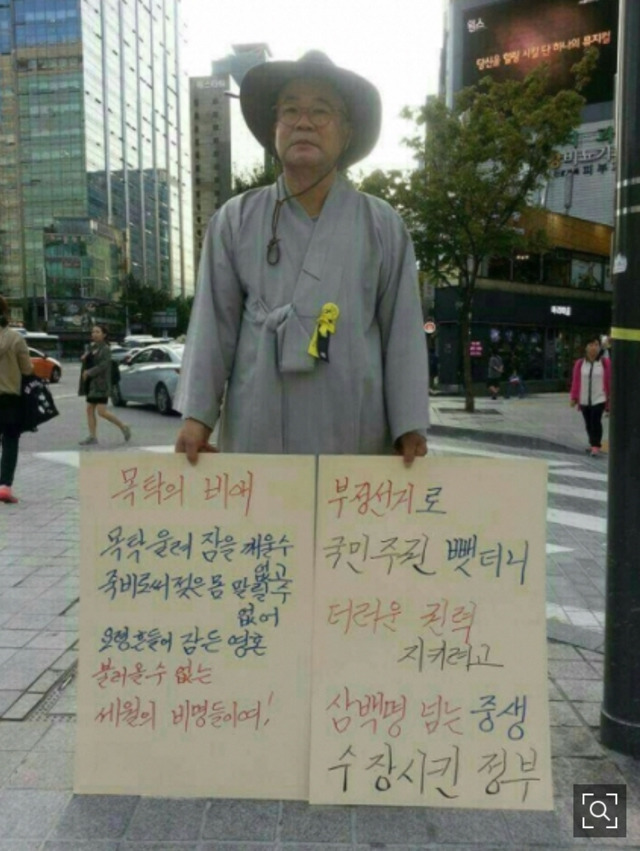 윕스
당신을 힐링 시킬 단 하나의 뮤지컬
비뇨기
피부
목탁의 비애
목탁 울려 잠을 깨울수
없고
죽비로써 젖은 몸 말릴 수
없어
요령흔들어 잠든 영혼
불러올수 없는
세월의 비명들이여!
부정선거로
국민주권 뺏더니
더러운 권력
지키려고
삼백명 넘는 중생
수장시킨 정부